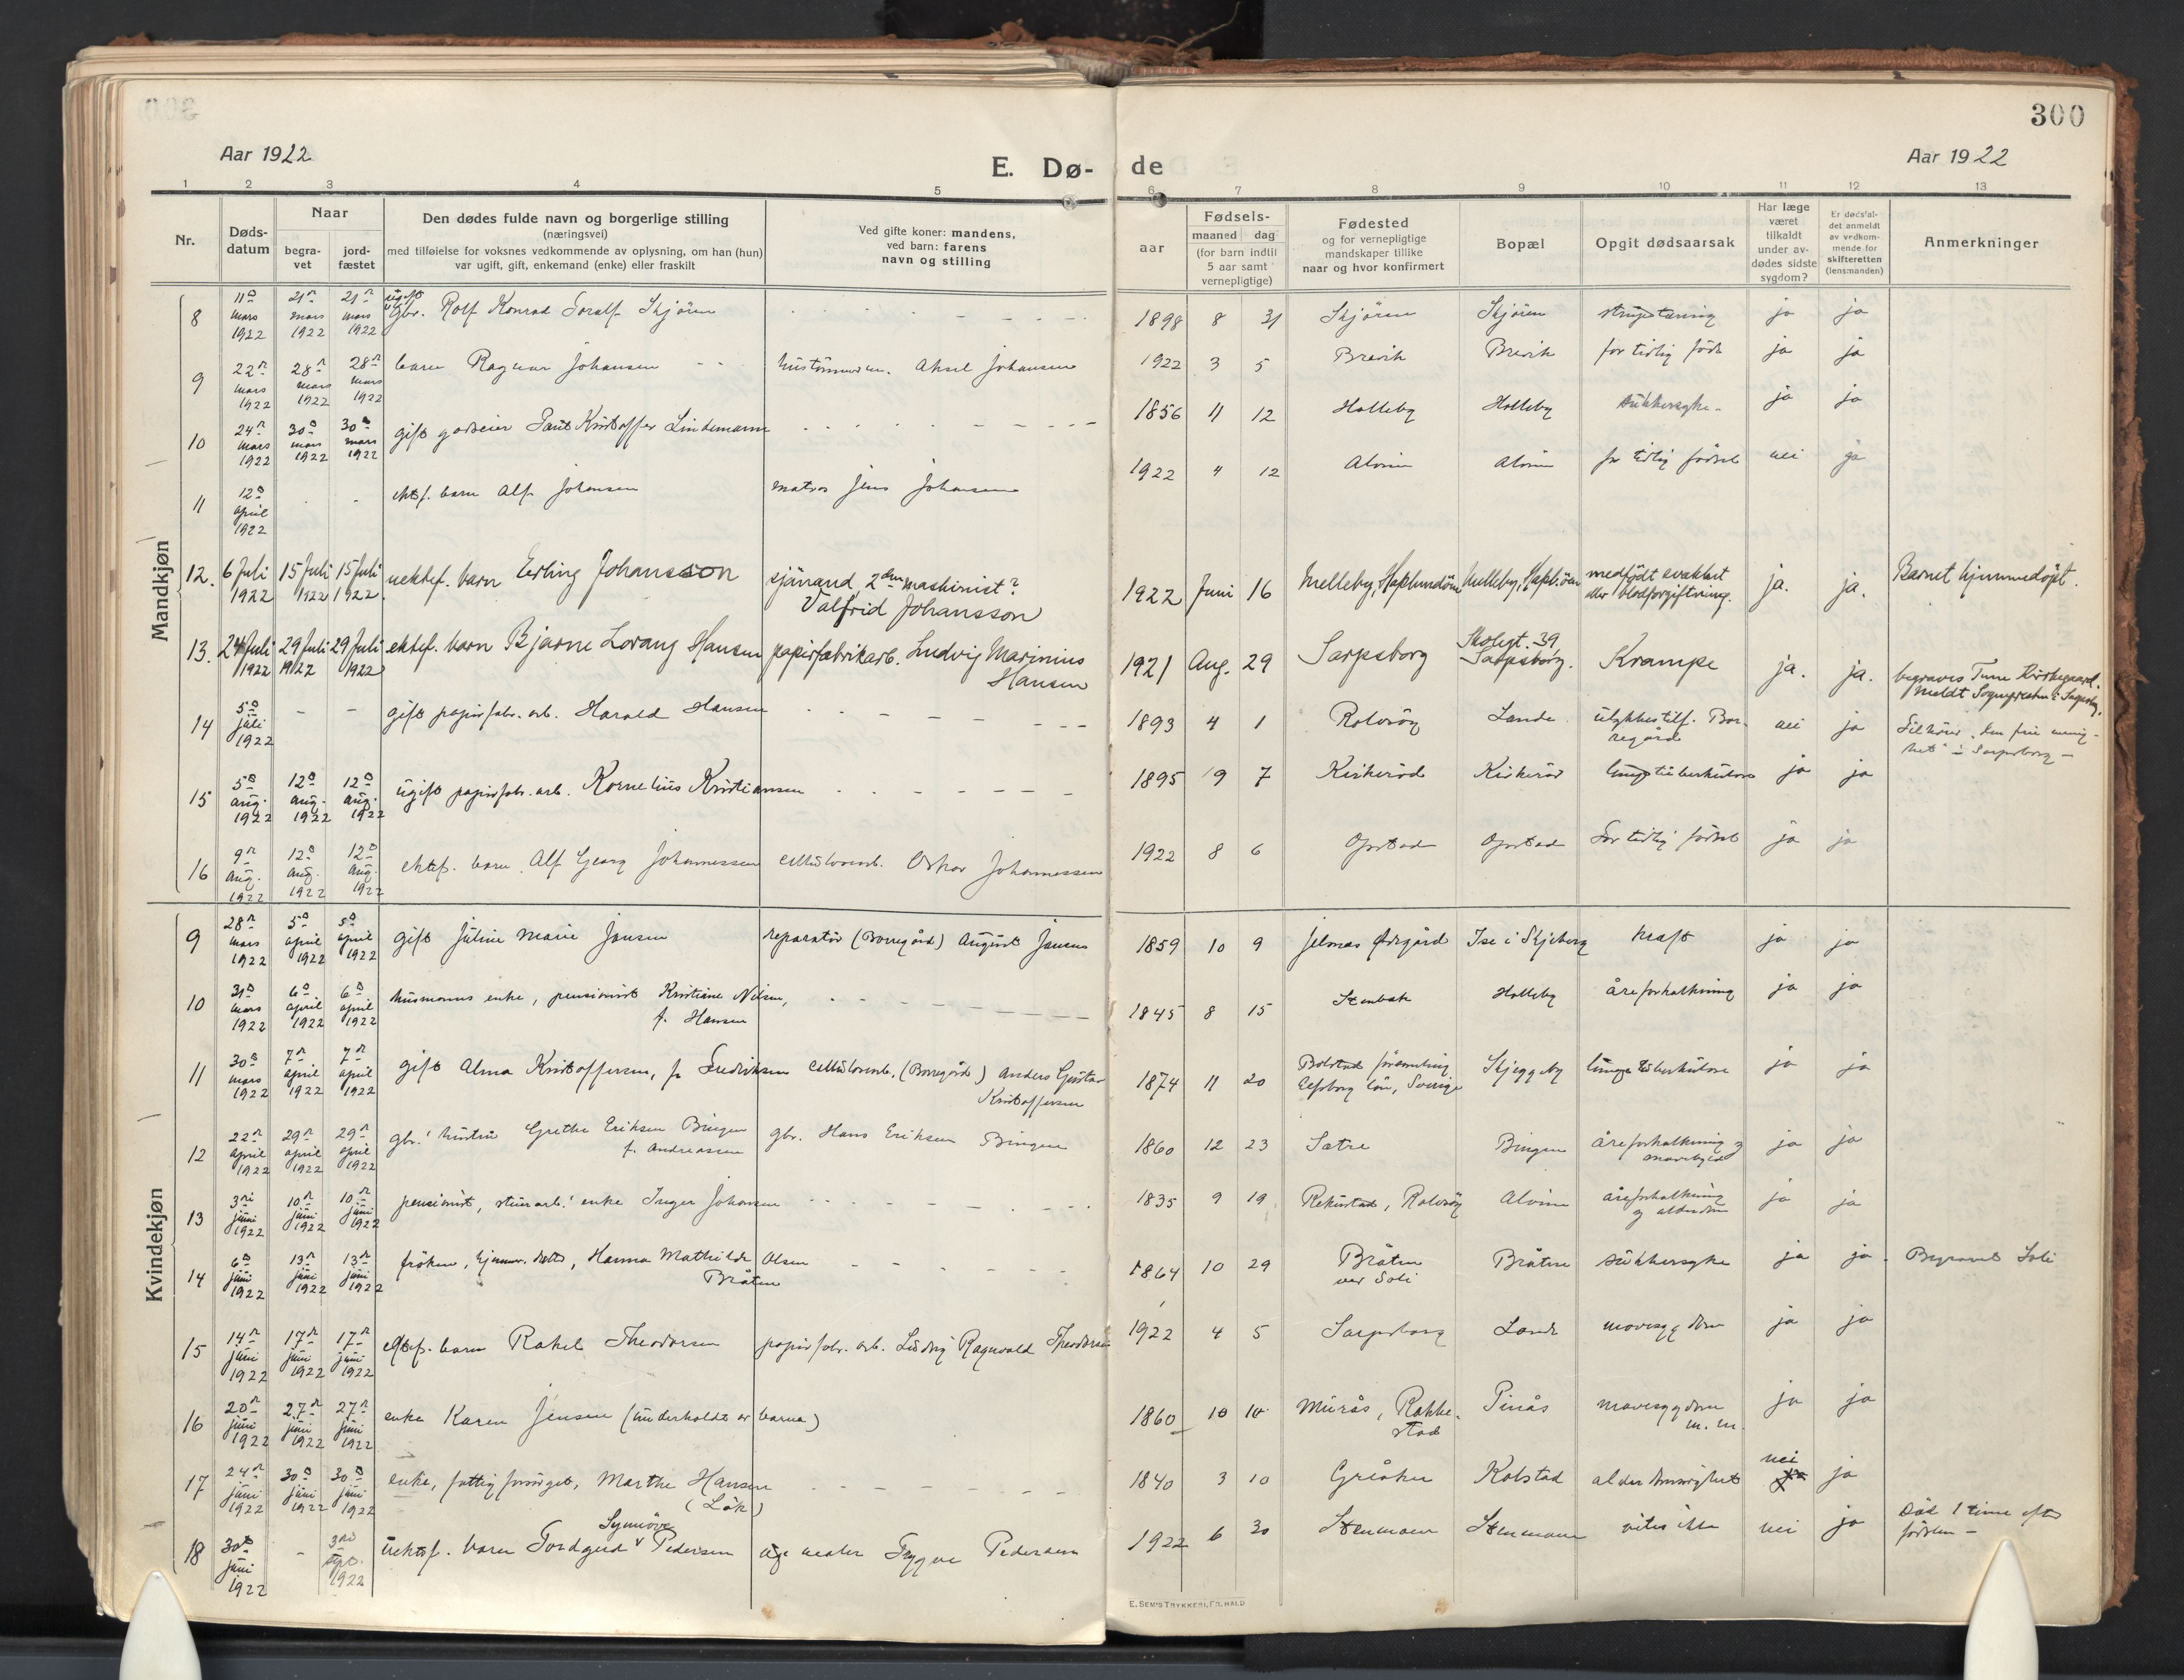 300
Aar 1922
E. Dø- de
Aar 1922
1 2 3 4 5 6 7 8 9 10 11 12 13
Nr.
Døds-
datum
Naar
begra-
vet
jord-
fæstet
Den dødes fulde navn og borgerlige stilling
(næringsvei)
med tilføielse for voksnes vedkommende av oplysning, om han (hun)
var ugift, gift, enkemand (enke) eller fraskilt
Ved gifte koner: mandens,
ved barn: farens
navn og stilling
aar
Fødsels-
maaned dag
(for barn indtil
5 aar samt
vernepligtige)
Fødested
og for vernepligtige
mandskaper tillike
naar og hvor konfirmert
Bopæl
Opgit dødsaarsak
Har læge
været
tilkaldt
under av-
dødes sidste
sygdom?
Er dødsfal-
det anmeldt
av vedkom-
mende for
skifteretten
(lensmanden)
Anmerkninger
Mandkjøn
8 11 mars 1922 21 mars 1922 21 mars 1922 ugift Gbr. Rolf Konrad Toralf Skjøren 1898 8 31 Skjøren Skjøren strupetæring ja ja
9 22 mars 1922 28 mars 1922 28 mars 1922 barn Ragnar Johansen Aksel Johansen 1922 3 5 Brevik Brevik for tidlig født ja ja
10 24 mars 1922 30 mars 1922 30 mars 1922 gift gårdeier Paul Kristoffer Lindemann 1856 11 12 Holleby Holleby sukkersyke ja ja
11 12 april 1922 - - ektef. barn Alf Johansen matros Jens Johansen 1922 4 12 Alvim Alvim for tidlig fødsel nei ja
12. 6 Juli 1922 15 Juli 1922 15 Juli 1922 uektef. barn Erling Johansson sjömand, 2den maskinist? Valfrid Johansson 1922 Juni 16 Melleby, Haflundöen Melleby, Hafl.öen medfødt svakhet eller blodforgiftning. ja. ja. Barnet hjemmedøpt.
13. 24 Juli 1922 29 Juli 1922 29 Juli 1922 ektef. barn Bjarne Lorang Hansen papirfabrikarb. Ludvig Marinius Hansen 1921 Aug. 29 Sarpsborg Skolegt. 39 Sarpsborg. Krampe ja. ja. begraves Tune Kirkegaard. Meldt Sognepresten i Sarpsbg.
14 5 juli 1922 - - gift papirfabr. arb. Harald Hansen 1893 4 1 Rolvsøy Lande ulykkestilf. Bor- regård nei ja Tilhører "den frie menig- het" i Sarpsborg -
15 5 aug. 1922 12 aug. 1922 12 aug. 1922 ugift papirfabr. arb. Kornelius Kristiansen 1895 9 7 Kirkerød Kirkerød lungetuberkulose ja ja
16 9 aug. 1922 12 aug. 1922 12 aug. 1922 ektef. barn Alf Georg Johannessen cellulosearb. Oskar Johannessen 1922 8 6 Opstad Opstad For tidlig fødsel ja ja
Kvindekjøn
9 28 mars 1922 5 april 1922 5 april 1922 gift Juline Marie Jensen reparatør (Borregård) August Jensen 1859 10 9 Ise i Skjeberg kræft ja ja
10 31 mars 1922 6 april 1922 6 april 1922 husmanns enke, pensionist Kristiane Nilsen, f. Hansen 1845 8 15 Stenbæk Holleby åreforkalkning ja ja
11 30 mars 1922 7 april 1922 7 april 1922 gift Alma Kristoffersen, f. Fredriksen cellulosearb. (Borregård) Anders Gustav Kristoffersen 1874 11 20 Bolstad församling Elfsborg län, Sverige Skjeggeby lungetuberkulose ja ja
12 22 april 1922 29 april 1922 29 april 1922 gbr.' hustru Grethe Eriksen Bingen f. Andreassen gbr. Hans Eriksen Bingen 1860 12 23 Sætre Bingen åreforkalkning og ja ja
13 3 juni 1922 10 juni 1922 10 juni 1922 pensionist, enke Inger Johansen 1835 9 19 Rekustad, Rolvsøy Alvim åreforkalkning og alderdom ja ja
14 6 juni 1922 13 juni 1922 13 juni 1922 frøken, hjemmev. datter, Hanna Mathilde Olsen Bråten 1864 10 29 Bråten ved Soli Bråten sukkersyke ja ja Begravet Soli
15 14 juni 1922 17 juni 1922 17 juni 1922 ektef. barn Rakel Theodorsen papirfabr. arb. Ludvig Ragnvald Theodorsen 1922 4 5 Sarpsborg Lande mavesygdom ja ja
16 20 juni 1922 27 juni 1922 27 juni 1922 enke Karen Jensen (underholdt av barna) 1860 10 10 Murås, Rakke- stad Pinås mavesygdom m. m. ja ja
17 24 juni 1922 30 juni 1922 30 juni 1922 enke, fattigforsørget, Marthe Hansen (Løk) 1840 3 10 Greåker Kolstad alderdomssvakhet nei ja
18 30 juni 1922 - 3 1922 uektef. barn Tordgerd Synnøve Pedersen Trygve Pedersen 1922 6 30 Stenmoen Stenmoen vites ikke nei ja Død 1 time efter fødslen -
E. SEM'S TRYKKERI, FR.HALD